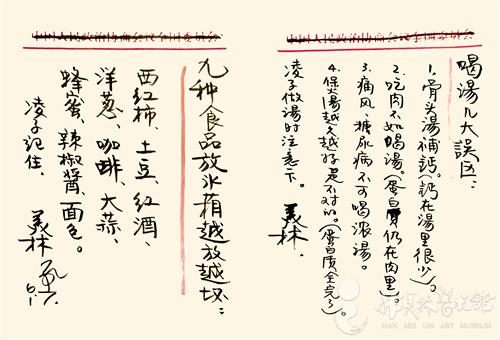 中国人民政治协商会议全国委员会
喝湯几大誤区：
1.骨头湯補鈣。(鈣在湯里很少)。
2.吃肉不如喝湯。(蛋白質仍在肉里)。
3.痛风、糖尿病不可喝浓湯。
4.煲湯越久越好是不对的。(蛋白质全完了)
凌子做湯时注意下。
美林.
中国人民政治协商会议全国委员会
九种食品放氷箱越放越坏：
西红柿、土豆、红酒、
洋葱、咖啡、大蒜、
蜂蜜、辣椒醬、面包。
凌子记住、
美林
6.17.
韩美林艺术馆
HAN MEI LIN ART MUSEUM